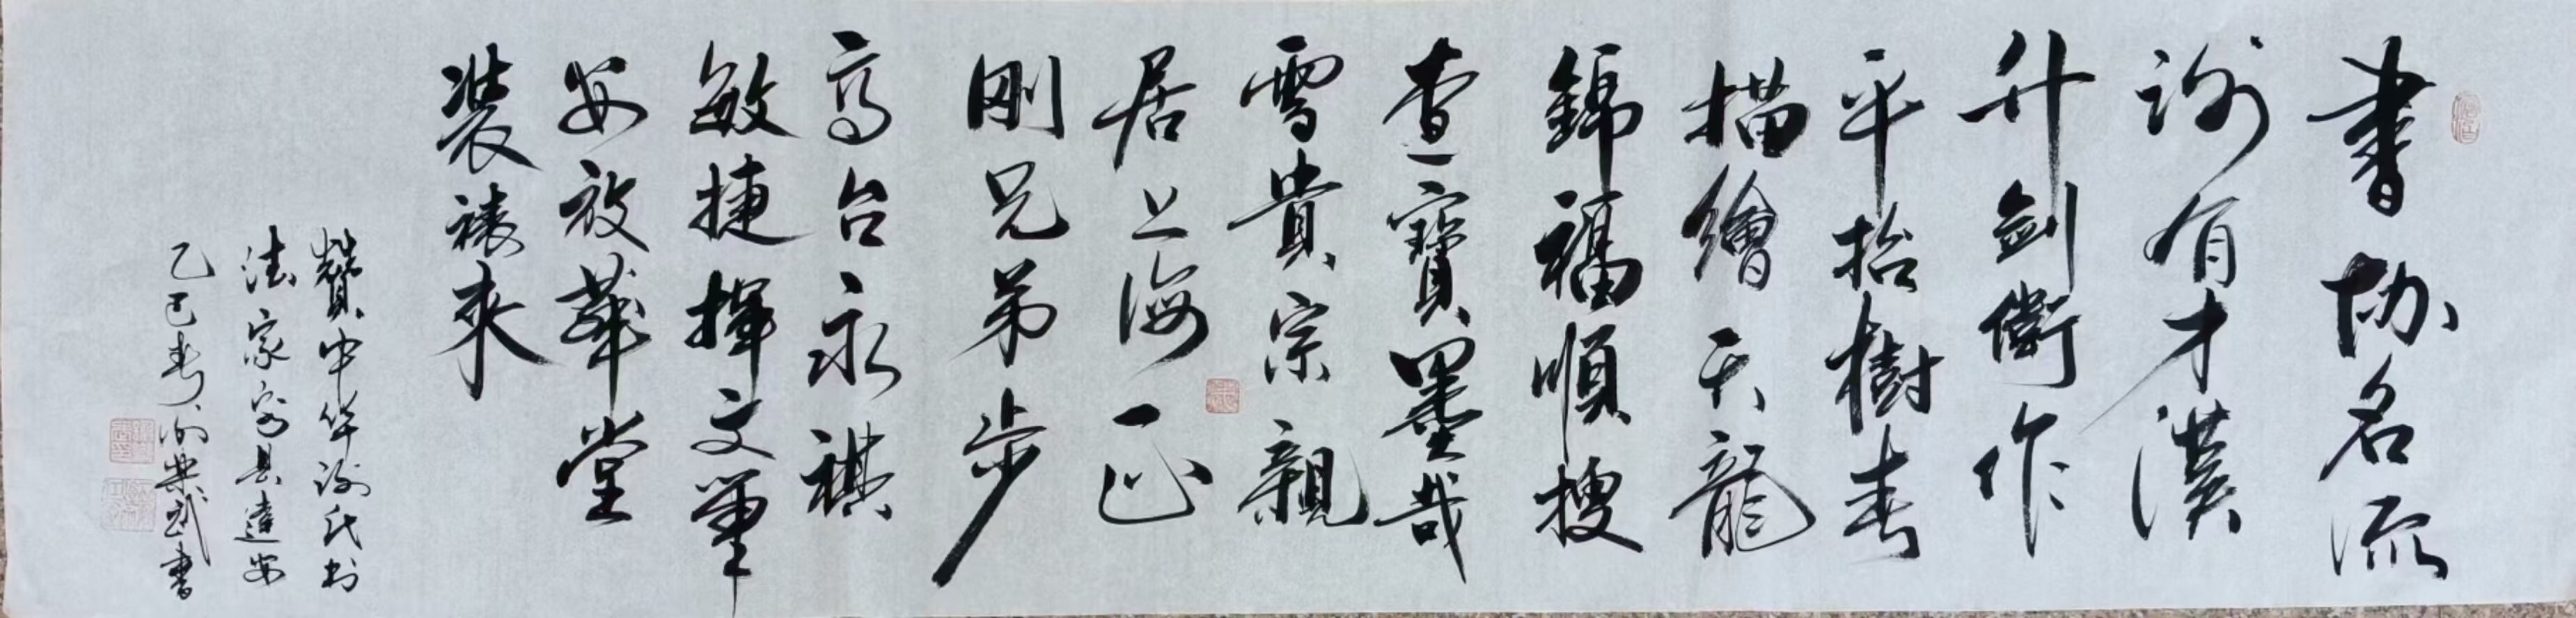 書協名流
謝有才漢
升剑衛作
平抬樹春
描繪天龍
錦福順搜
查寶墨哉
雪貴宗親
居上海正
刚兄弟步
高台永祺
敏捷揮文筆
安放華堂
裝裱来
贊中华謝氏书
法家安县達安
乙巳春谢崇武書